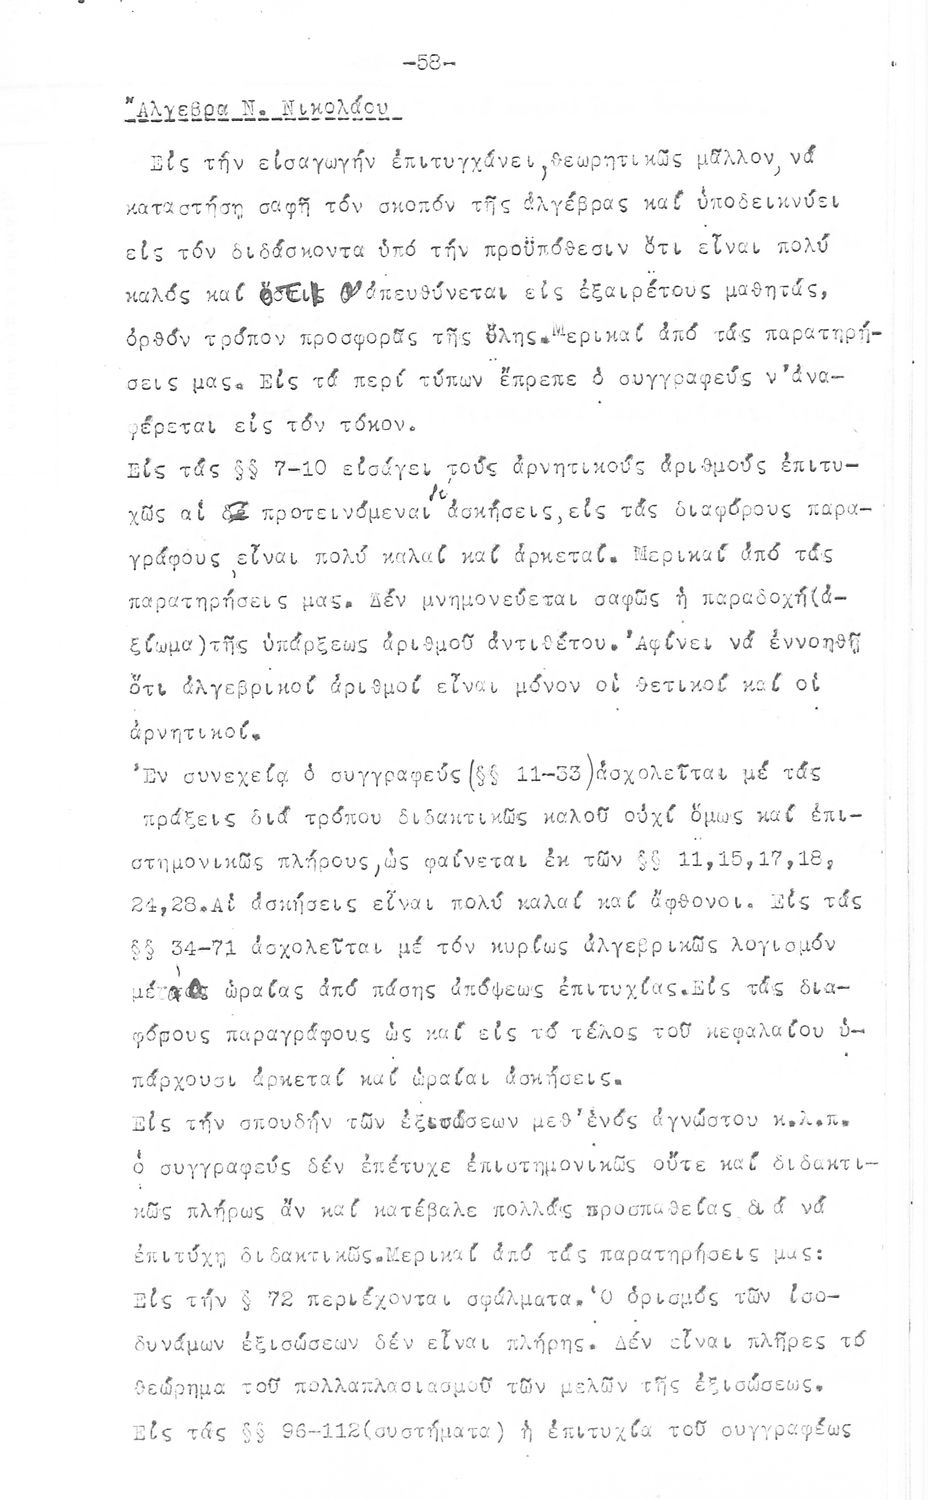 -58-
Ἄλγεβρα Ν. Νικολάου
Εἰς τήν εἰσαγωγήν ἐπιτυγχάνει, θεωρητικῶς μᾶλλον, νά
καταστήσῃ σαφῆ τόν σκοπόν τῆς ἀλγέβρας καί ὑποδεικνύει
εἰς τόν διδάσκοντα ὑπό τήν προϋπόθεσιν ὅτι εἶναι πολύ
καλός καί ὅστις ἀπευθύνεται εἰς ἐξαιρέτους μαθητάς,
ὀρθόν τρόπον προσφορᾶς τῆς ὕλης.Μερικαί ἀπό τάς παρατηρή-
σεις μας. Εἰς τά περί τύπων ἔπρεπε ὁ συγγραφεύς ν'ἀνα-
φέρεται εἰς τόν τόκον.
Εἰς τάς §§ 7-10 εἰσάγει τούς ἀρνητικούς ἀριθμούς ἐπιτυ-
χῶς αἱ δέ προτεινόμεναι ἀσκήσεις,εἰς τάς διαφόρους παρα-
γράφους, εἶναι πολύ καλαί καί ἀρκεταί. Μερικαί ἀπό τάς
παρατηρήσεις μας. Δέν μνημονεύεται σαφῶς ἡ παραδοχή(ἀ-
ξίωμα)τῆς ὑπάρξεως ἀριθμοῦ ἀντιθέτου.'Αφίνει νά ἐννοηθῇ
ὅτι ἀλγεβρικοί ἀριθμοί εἶναι μόνον οἱ θετικοί καί οἱ
ἀρνητικοί.
'Εν συνεχείᾳ ὁ συγγραφεύς(§§ 11-33)ἀσχολεῖται μέ τάς
πράξεις διά τρόπου διδακτικῶς καλοῦ οὐχί ὅμως καί ἐπι-
στημονικῶς πλήρους,ὡς φαίνεται ἐκ τῶν §§ 11,15,17,18,
24,28.Αἱ ἀσκήσεις εἶναι πολύ καλαί καί ἄφθονοι. Εἰς τάς
§§ 34-71 ἀσχολεῖται μέ τόν κυρίως ἀλγεβρικῶς λογισμόν
μέ ὡραίας ἀπό πάσης ἀπόψεως ἐπιτυχίας.Εἰς τάς δια-
φόρους παραγράφους ὡς καί εἰς τό τέλος τοῦ κεφαλαίου ὑ-
πάρχουσι ἀρκεταί καί ὡραῖαι ἀσκήσεις.
Εἰς τήν σπουδήν τῶν ἐξισώσεων μεθ'ἑνός ἀγνώστου κ.λ.π.
ὁ συγγραφεύς δέν ἐπέτυχε ἐπιστημονικῶς οὔτε καί διδακτι-
κῶς πλήρως ἄν καί κατέβαλε πολλάς προσπαθείας διά νά
ἐπιτύχῃ διδακτικῶς.Μερικαί ἀπό τάς παρατηρήσεις μας:
Εἰς τήν § 72 περιέχονται σφάλματα.'Ο ὁρισμός τῶν ἰσο-
δυνάμων ἐξισώσεων δέν εἶναι πλήρης. Δέν εἶναι πλῆρες τό
θεώρημα τοῦ πολλαπλασιασμοῦ τῶν μελῶν τῆς ἐξισώσεως.
Εἰς τάς §§ 96-112(συστήματα) ἡ ἐπιτυχία τοῦ συγγραφέως